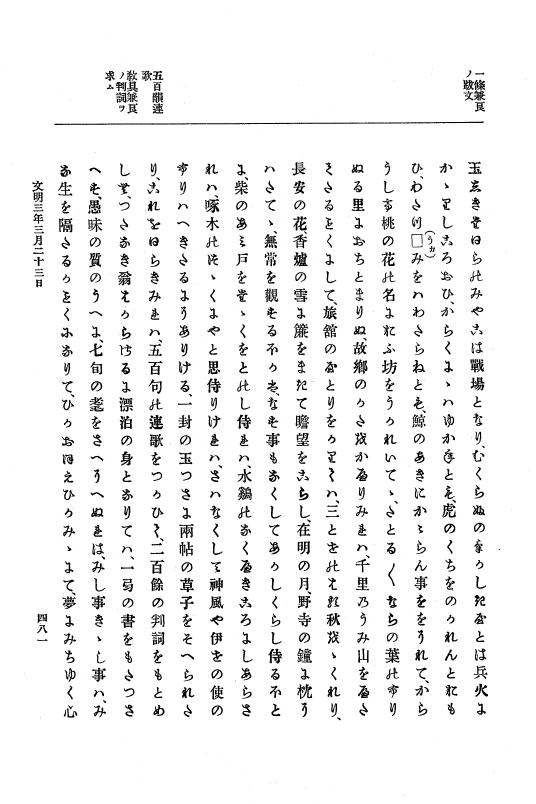 一條兼良
ノ跋文
五百韻連
歌
敎具兼良
ノ判詞ヲ
求ム
玉しきのみやこは戰場となり、むくらふのとは兵火に
かゝりしころおひ、からくにゝハゆかねとも、虎のくちをのかれんとにも
ひ、わさの□(うカ)みをハわたらねとも、鯨のあきにかゝらん事ををそれて、から
うして桃の花の名におふ坊をうかれいてゝ、さとる〱ならの葉のふり
ぬる里におちとまりぬ、故鄕のかたをかへりみれハ、千里乃うみ山をへた
てさるをくにして、旅館のやとりをかそふれハ、三とせの秋をゝくれり、
長安の花香爐の雪に簾をまきて瞻望をこらし、在明の月、野寺の鐘に枕を
ハたてゝ、無常を觀するほかは、なす事もなくしてあかしくらし侍るほと
に、柴のあみ戸をたゝくをとのし侍れハ、水鷄のなくへきころにしあらさ
れハ、啄木のたゝくにやと思侍りけれハ、さハなくして神風や伊せの使の
まりハへきたるにそありける、一封の玉つさに兩帖の草子をそへられた
り、これをひらきみれハ、五百句の連歌をつかひ、二百餘の判詞をもとめ
しむ、つたなき翁漂泊の身となりてハ、一弓の書をもたつさ
へす、愚昧の質のうへに、七旬の耄をさへくはへぬれは、みし事きゝし事ハ、み
な生を隔たるかことくになりて、ひかおほえひかみゝにて、夢にみちゆく心
文明三年三月二十三日
四八一